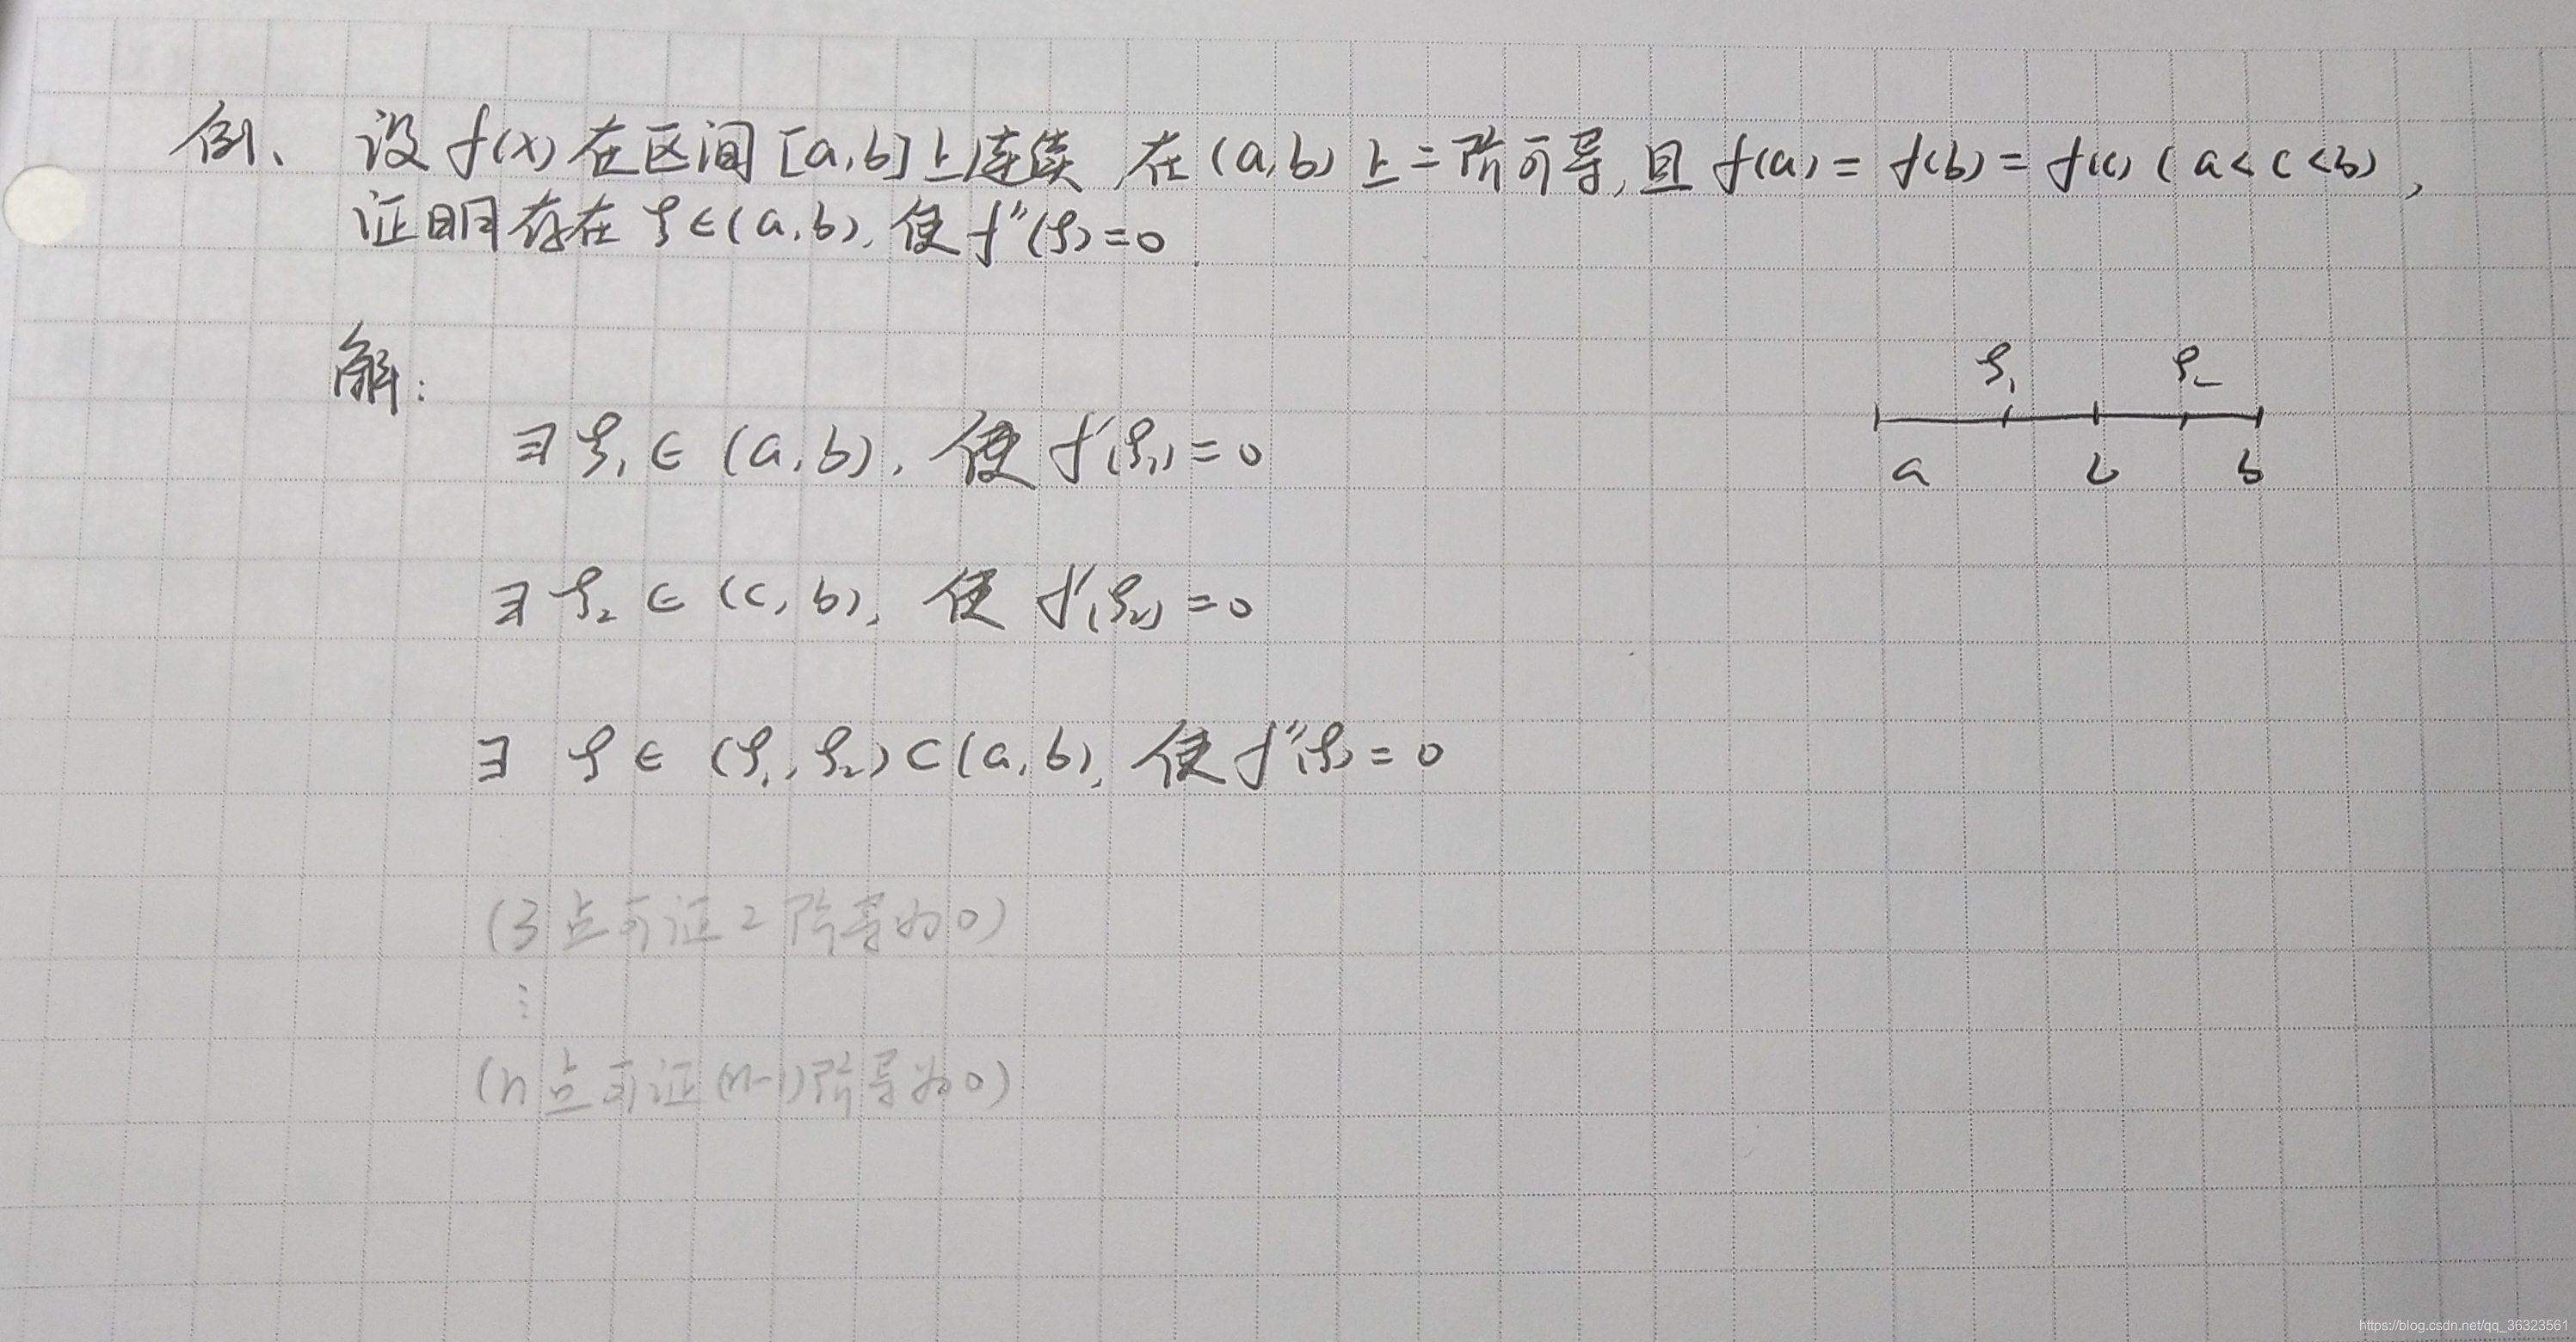 例、 设 f(x) 在区间 [a,b] 上连续,在 (a,b) 上二阶可导,且 f(a) = f(b) = f(c) ( a < c < b) ,
证明存在 ξ∈(a,b), 使 f″(ξ)=0
解:
ξ₁ ξ₂
a c b
∃ ξ₁ ∈ (a,b), 使 f′(ξ₁)=0
∃ ξ₂ ∈ (c,b), 使 f′(ξ₂)=0
∃ ξ ∈ (ξ₁,ξ₂)⊂(a,b), 使 f″(ξ)=0
(3点可证2阶导为0)
⋮
(n点可证(n-1)阶导为0)
https://blog.csdn.net/qq_36323561